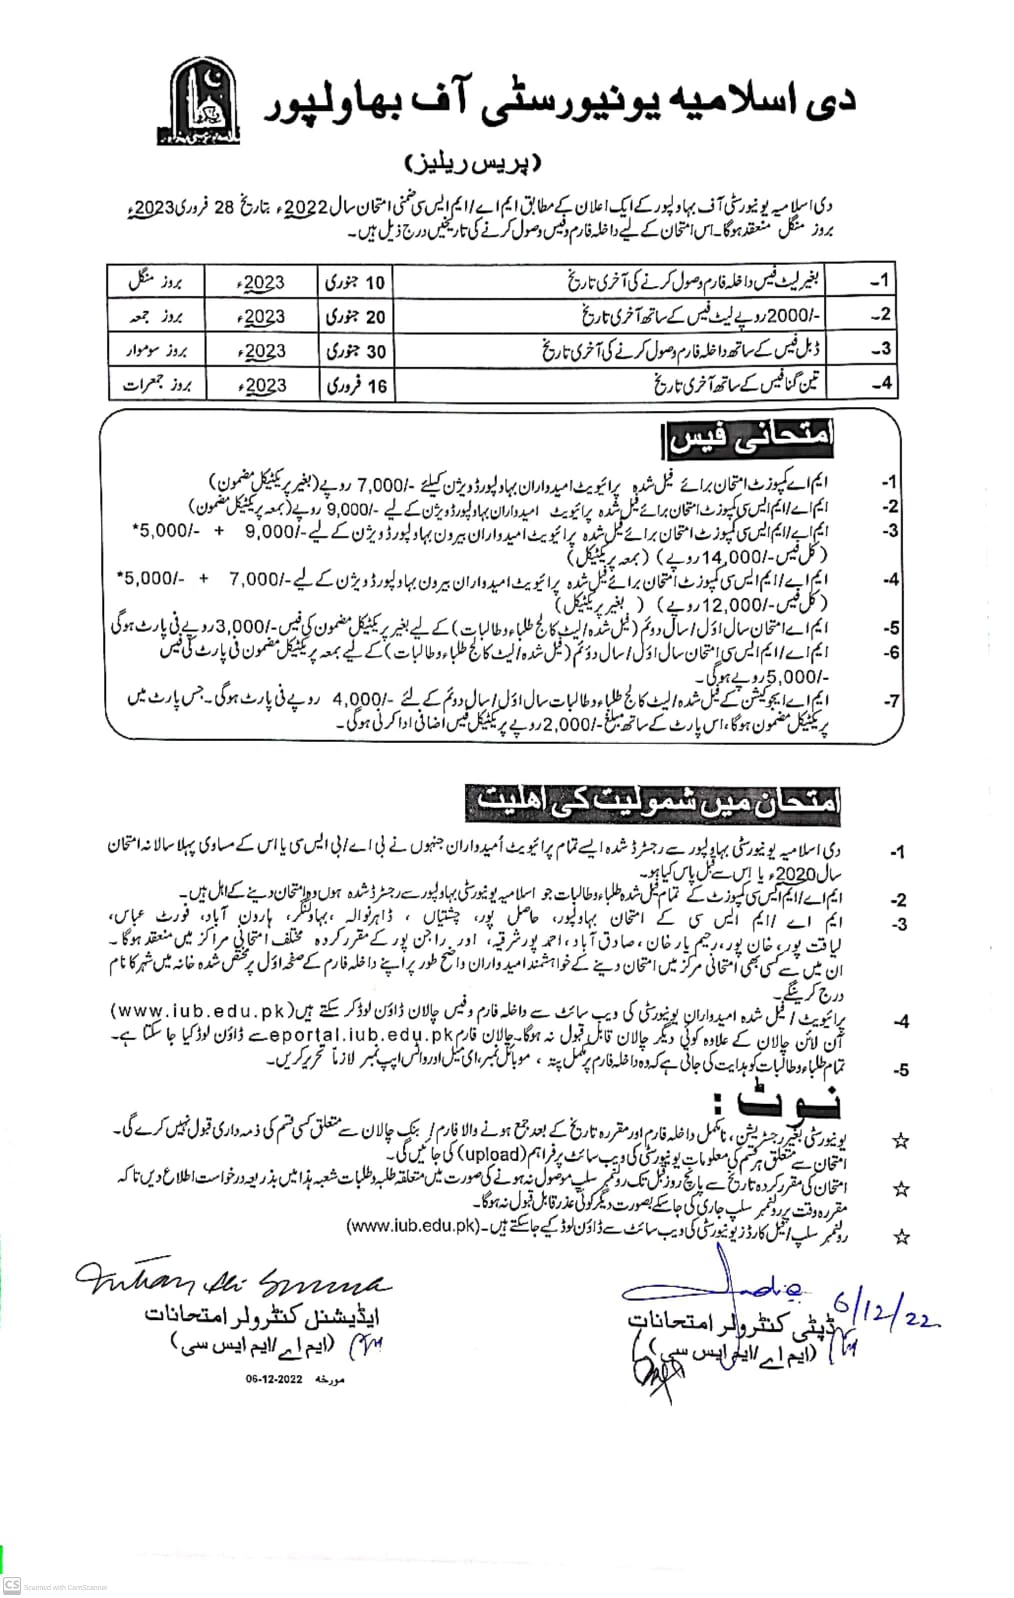 دی اسلامیہ یونیورسٹی آف بھاولپور
(پریس ریلیز)
دی اسلامیہ یونیورسٹی آف بہاولپور کے ایک اعلان کے مطابق ایم اے/ایم ایس سی ضمنی امتحان سال 2022ء بتاریخ 28 فروری 2023ء
بروز منگل منعقد ہوگا۔ اس امتحان کے لیے داخلہ فارم و فیس وصول کرنے کی تاریخیں درج ذیل ہیں۔
1۔ بغیر لیٹ فیس داخلہ فارم وصول کرنے کی آخری تاریخ 10 جنوری 2023ء بروز منگل
2۔ 2000/- روپے لیٹ فیس کے ساتھ آخری تاریخ 20 جنوری 2023ء بروز جمعہ
3۔ ڈبل فیس کے ساتھ داخلہ فارم وصول کرنے کی آخری تاریخ 30 جنوری 2023ء بروز سوموار
4۔ تین گنا فیس کے ساتھ آخری تاریخ 16 فروری 2023ء بروز جمعرات
امتحانی فیس
1- ایم اے کمپوزٹ امتحان برائے فیل شدہ پرائیویٹ امیدواران بہاولپور ڈویژن کیلئے 7,000/- روپے (بغیر پریکٹیکل مضمون)
2- ایم اے/ایم ایس سی کمپوزٹ امتحان برائے فیل شدہ پرائیویٹ امیدواران بہاولپور ڈویژن کے لیے 9,000/- روپے (بمعہ پریکٹیکل مضمون)
3- ایم اے/ایم ایس سی کمپوزٹ امتحان برائے فیل شدہ پرائیویٹ امیدواران بیرون بہاولپور ڈویژن کے لیے 9,000/- + 5,000/-*
(کل فیس 14,000/- روپے) (بمعہ پریکٹیکل)
4- ایم اے/ایم ایس سی کمپوزٹ امتحان برائے فیل شدہ پرائیویٹ امیدواران بیرون بہاولپور ڈویژن کے لیے 7,000/- + 5,000/-*
(کل فیس 12,000/- روپے) (بغیر پریکٹیکل)
5- ایم اے امتحان سال اوّل/سال دوئم (فیل شدہ/لیٹ کالج طلباء و طالبات) کے لیے بغیر پریکٹیکل مضمون کی فیس 3,000/- روپے فی پارٹ ہوگی
6- ایم اے/ایم ایس سی امتحان سال اوّل/سال دوئم (فیل شدہ/لیٹ کالج طلباء و طالبات) کے لیے بمعہ پریکٹیکل مضمون فی پارٹ کی فیس
5,000/- روپے ہوگی۔
7- ایم اے ایجوکیشن کے فیل شدہ/لیٹ کالج طلباء و طالبات سال اوّل/سال دوئم کے لئے 4,000/- روپے فی پارٹ ہوگی۔ جس پارٹ میں
پریکٹیکل مضمون ہوگا، اس پارٹ کے ساتھ مبلغ 2,000/- روپے پریکٹیکل فیس اضافی ادا کرنی ہوگی۔
امتحان میں شمولیت کی اہلیت
1- دی اسلامیہ یونیورسٹی بہاولپور سے رجسٹرڈ شدہ ایسے تمام پرائیویٹ اُمیدواران جنہوں نے بی اے/بی ایس سی یا اس کے مساوی پہلا سالانہ امتحان
سال 2020ء یا اس سے قبل پاس کیا ہو۔
2- ایم اے/ایم ایس سی کمپوزٹ کے تمام فیل شدہ طلباء و طالبات جو اسلامیہ یونیورسٹی بہاولپور سے رجسٹرڈ شدہ ہوں وہ امتحان دینے کے اہل ہیں۔
3- ایم اے/ایم ایس سی کے امتحان بہاولپور، حاصل پور، چشتیاں، ڈاہرنوالہ، بہاولنگر، ہارون آباد، فورٹ عباس،
لیاقت پور، خان پور، رحیم یار خان، صادق آباد، احمد پور شرقیہ، اور راجن پور کے مقرر کردہ مختلف امتحانی مراکز میں منعقد ہوگا۔
ان میں سے کسی بھی امتحانی مرکز میں امتحان دینے کے خواہشمند امیدواران واضح طور پر اپنے داخلہ فارم کے صفحہ اوّل پر مختص شدہ خانہ میں شہر کا نام
درج کرینگے۔
4- پرائیویٹ/فیل شدہ امیدواران یونیورسٹی کی ویب سائٹ سے داخلہ فارم و فیس چالان ڈاؤن لوڈ کر سکتے ہیں (www.iub.edu.pk)
آن لائن چالان کے علاوہ کوئی دیگر چالان قابل قبول نہ ہوگا۔ چالان فارم eportal.iub.edu.pk سے ڈاؤن لوڈ کیا جا سکتا ہے۔
5- تمام طلباء و طالبات کو ہدایت کی جاتی ہے کہ وہ داخلہ فارم پر مکمل پتہ، موبائل نمبر، ای میل اور واٹس ایپ نمبر لازماً تحریر کریں۔
نوٹ:
☆ یونیورسٹی بغیر رجسٹریشن، نامکمل داخلہ فارم اور مقررہ تاریخ کے بعد جمع ہونے والا فارم/ بنک چالان سے متعلق کسی قسم کی ذمہ داری قبول نہیں کرے گی۔
امتحان سے متعلق ہر قسم کی معلومات یونیورسٹی کی ویب سائٹ پر فراہم (upload) کی جائیں گی۔
☆ امتحان کی مقرر کردہ تاریخ سے پانچ روز قبل تک رولنمبر سلپ موصول نہ ہونے کی صورت میں متعلقہ طلبہ و طلبات شعبہ ہذا میں بذریعہ درخواست اطلاع دیں تاکہ
مقررہ وقت پر رولنمبر سلپ جاری کی جا سکے بصورت دیگر کوئی عذر قابل قبول نہ ہوگا۔
☆ رولنمبر سلپ/فیل کارڈز یونیورسٹی کی ویب سائٹ سے ڈاؤن لوڈ کیے جا سکتے ہیں۔ (www.iub.edu.pk)
6/12/22
ڈپٹی کنٹرولر امتحانات
(ایم اے/ایم ایس سی)
ایڈیشنل کنٹرولر امتحانات
(ایم اے/ایم ایس سی)
مورخہ 06-12-2022
CS Scanned with CamScanner